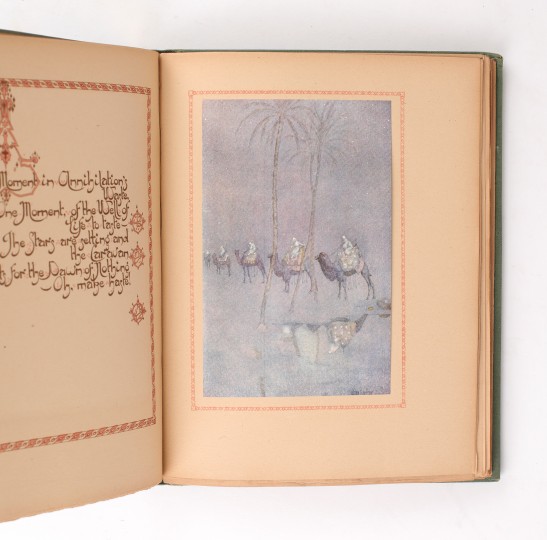 Moment in Annihilation's
Waste,
One Moment, of the Well of
Life to taste—
The Stars are setting and
the Caravan
ts for the Dawn of Nothing
Oh, make haste!